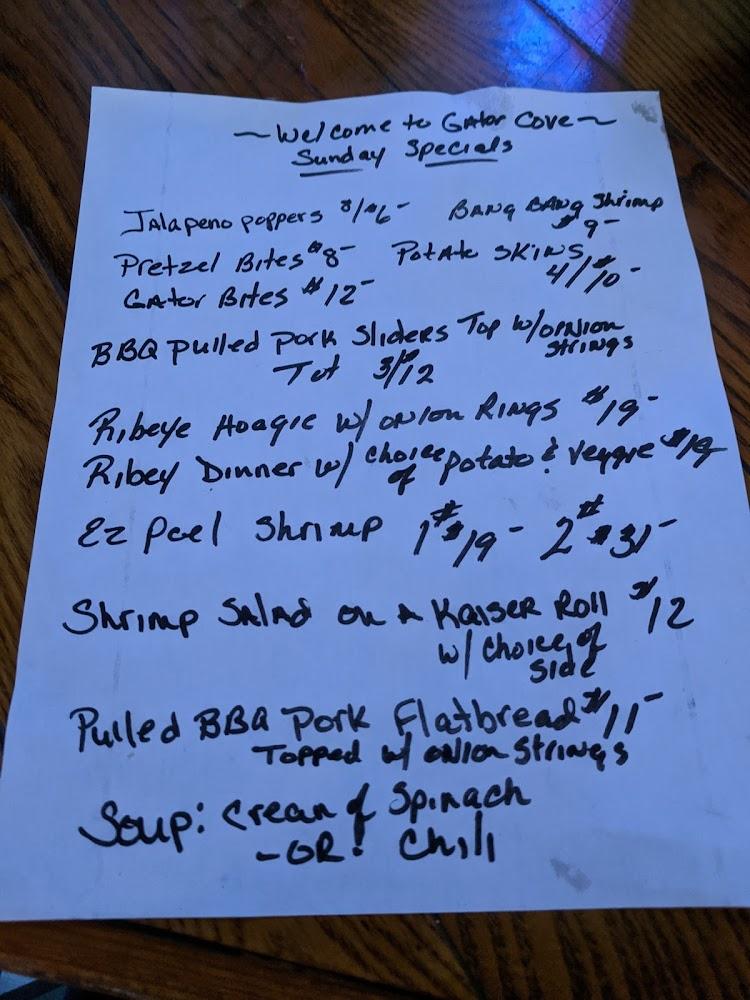 ~Welcome to Gator Cove~
Sunday Specials
Jalapeno poppers 8/$6- Bang Bang Shrimp
$9-
Pretzel Bites $8- Potato Skins
4/$10-
Gator Bites $12-
BBQ pulled pork Sliders Top w/onion
strings
3/$12
Ribeye Hoagie w/ onion Rings $19-
Ribey Dinner w/ choice of potato & veggie $19
Ez Peel Shrimp 1# $19- 2# $31-
Shrimp Salad on a Kaiser Roll $12
w/ choice of
side
Pulled BBQ Pork Flatbread $11-
Topped w/ onion strings
Soup: Cream of Spinach
-OR! Chili